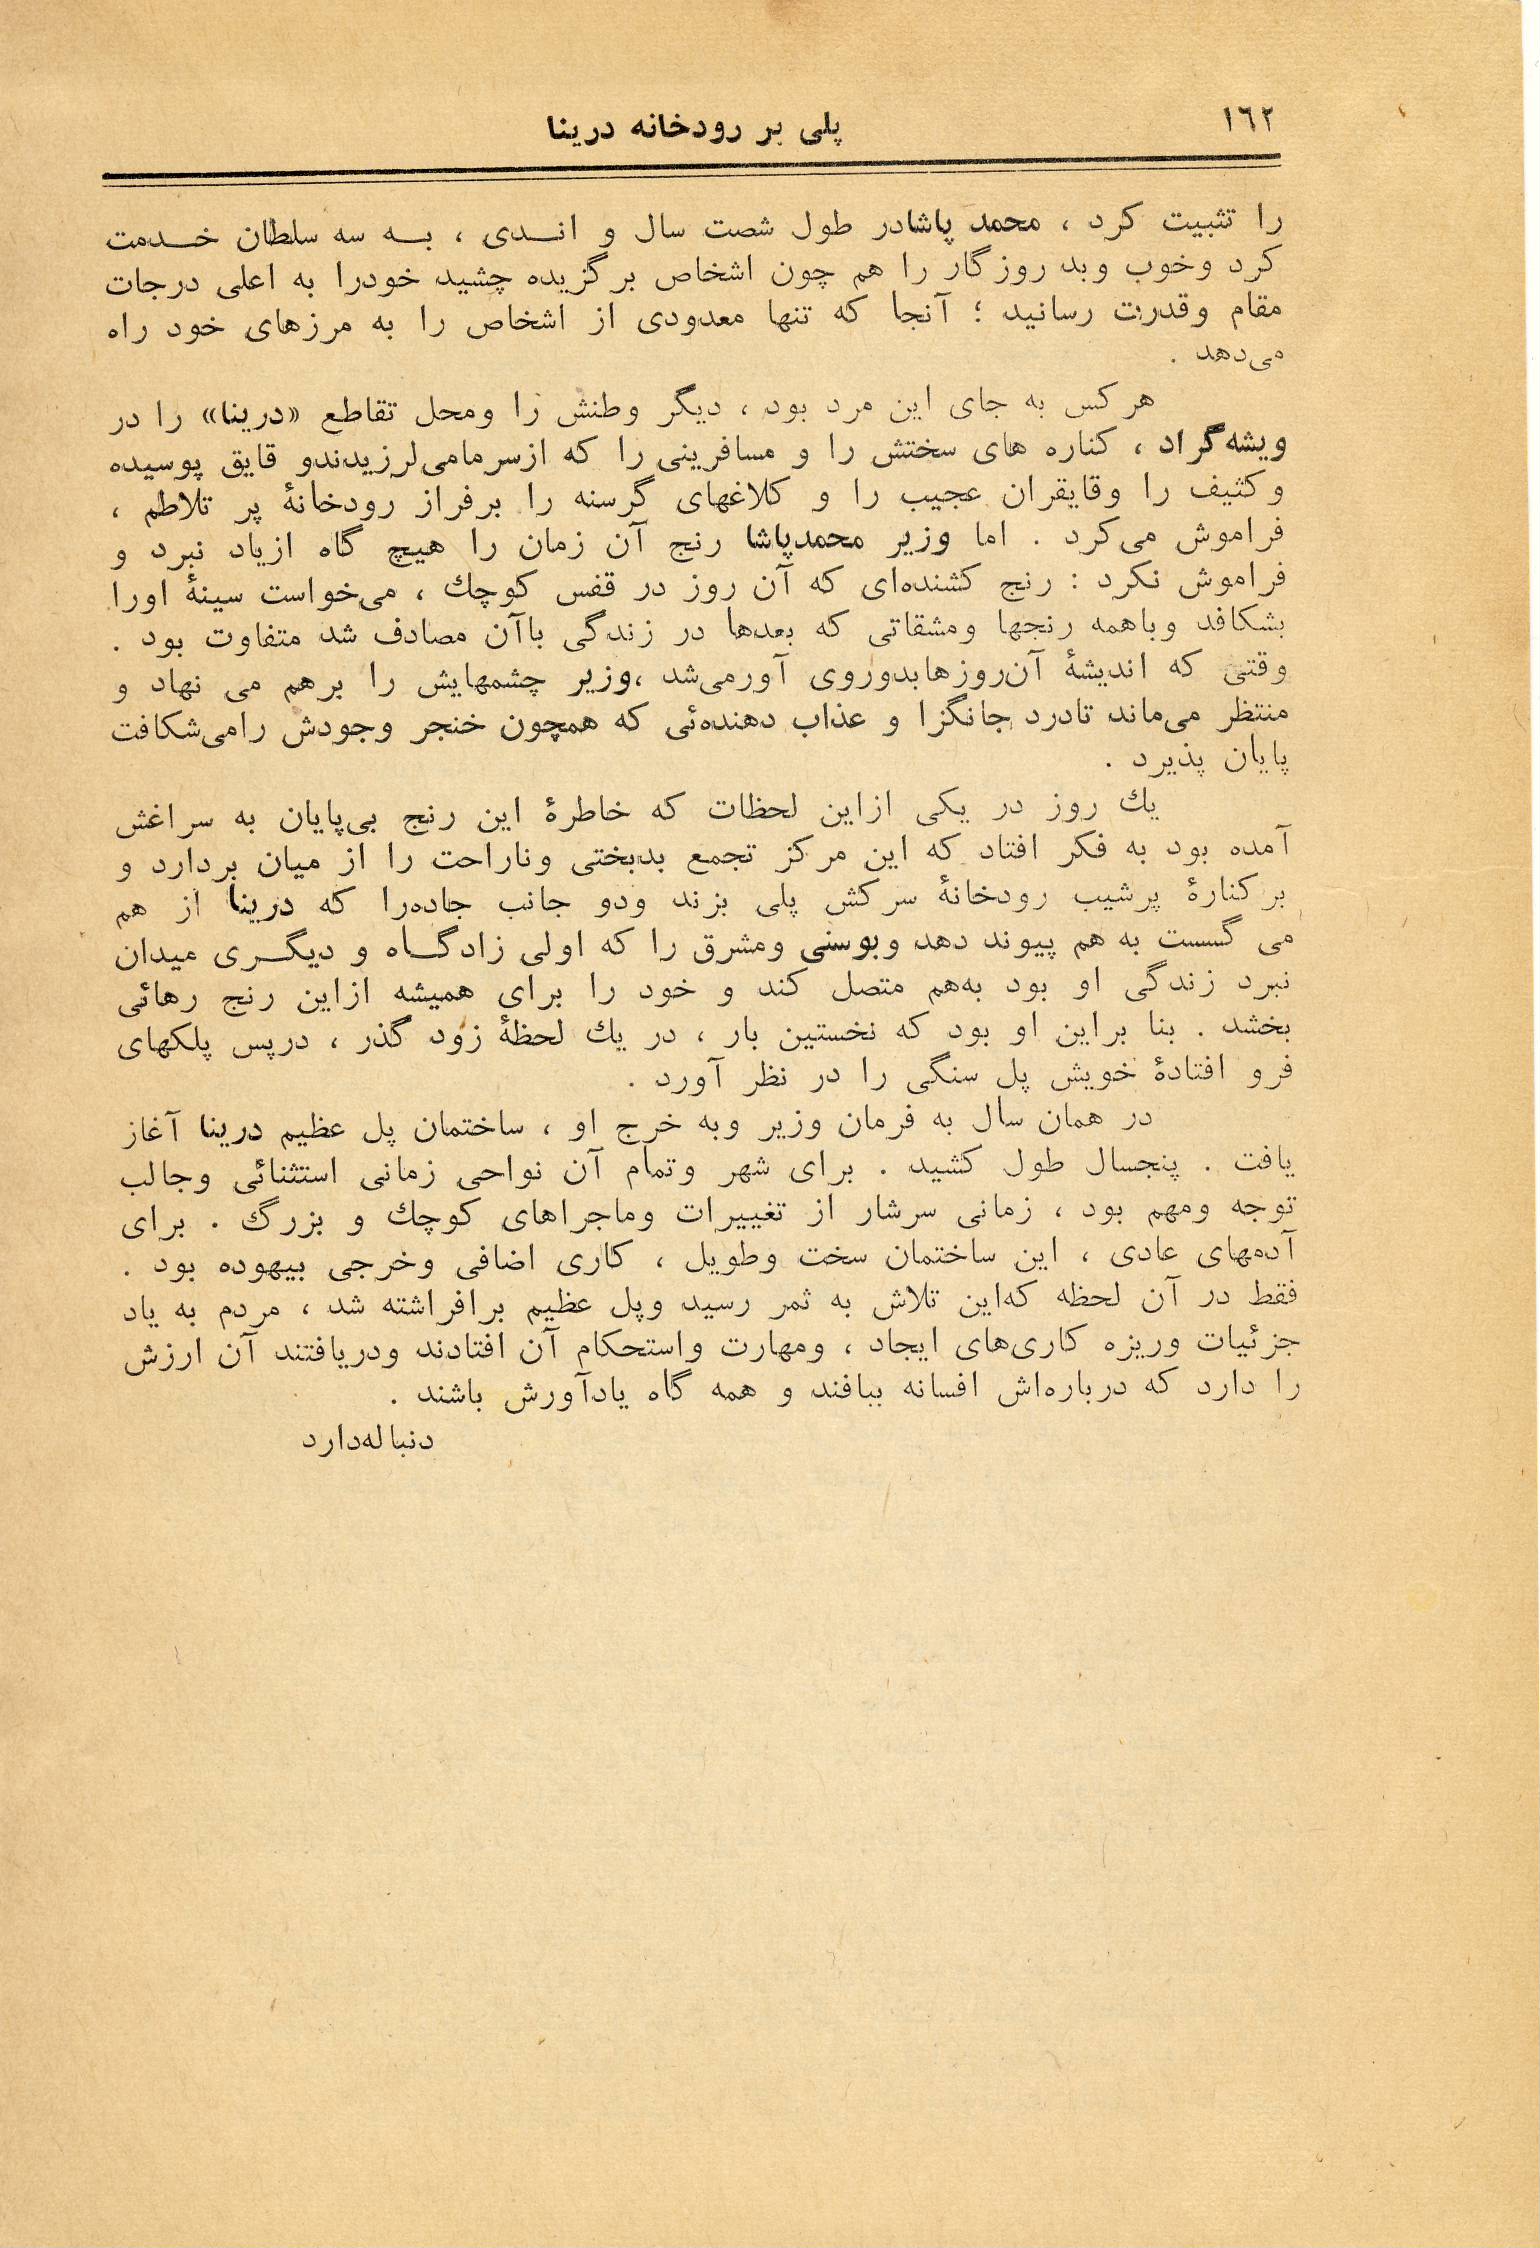 ۱٦۲
پلی بر رودخانه درینا
را تثبیت کرد ، محمد پاشادر طول شصت سال و اندی ، به سه سلطان خدمت
کرد وخوب وبد روزگار را هم چون اشخاص برگزیده چشید خودرا به اعلی درجات
مقام وقدرت رسانید ؛ آنجا که تنها معدودی از اشخاص را به مرزهای خود راه
می‌دهد .
هرکس به جای این مرد بود ، دیگر وطنش را ومحل تقاطع «درینا» را در
ویشه‌گراد ، کناره های سختش را و مسافرینی را که ازسرمامی‌لرزیدندو قایق پوسیده
وکثیف را وقایقران عجیب را و کلاغهای گرسنه را برفراز رودخانهٔ پر تلاطم ،
فراموش می‌کرد . اما وزیر محمدپاشا رنج آن زمان را هیچ گاه ازیاد نبرد و
فراموش نکرد : رنج کشنده‌ای که آن روز در قفس کوچك ، می‌خواست سینهٔ اورا
بشکافد وباهمه رنجها ومشقاتی که بعدها در زندگی باآن مصادف شد متفاوت بود .
وقتی که اندیشهٔ آن‌روزهابدوروی آورمی‌شد ،وزیر چشمهایش را برهم می نهاد و
منتظر می‌ماند تادرد جانگزا و عذاب دهنده‌ئی که همچون خنجر وجودش رامی‌شکافت
پایان پذیرد .
یك روز در یکی ازاین لحظات که خاطرهٔ این رنج بی‌پایان به سراغش
آمده بود به فکر افتاد که این مرکز تجمع بدبختی وناراحت را از میان بردارد و
برکنارهٔ پرشیب رودخانهٔ سرکش پلی بزند ودو جانب جاده‌را که درینا از هم
می گسست به هم پیوند دهد وبوسنی ومشرق را که اولی زادگاه و دیگری میدان
نبرد زندگی او بود به‌هم متصل کند و خود را برای همیشه ازاین رنج رهائی
بخشد . بنا براین او بود که نخستین بار ، در یك لحظهٔ زود گذر ، درپس پلکهای
فرو افتادهٔ خویش پل سنگی را در نظر آورد .
در همان سال به فرمان وزیر وبه خرج او ، ساختمان پل عظیم درینا آغاز
یافت . پنجسال طول کشید . برای شهر وتمام آن نواحی زمانی استثنائی وجالب
توجه ومهم بود ، زمانی سرشار از تغییرات وماجراهای کوچك و بزرگ . برای
آدمهای عادی ، این ساختمان سخت وطویل ، کاری اضافی وخرجی بیهوده بود .
فقط در آن لحظه که‌این تلاش به ثمر رسید وپل عظیم برافراشته شد ، مردم به یاد
جزئیات وریزه کاری‌های ایجاد ، ومهارت واستحکام آن افتادند ودریافتند آن ارزش
را دارد که درباره‌اش افسانه ببافند و همه گاه یادآورش باشند .
دنباله‌دارد